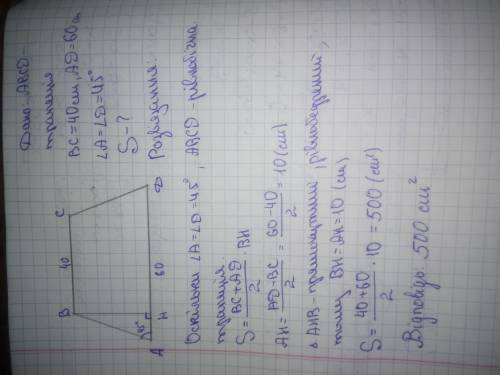 Дано: ABCD -
трапеція
BC = 40 см, AD = 60 см
∠A = ∠D = 45°
S - ?
Розв'язання.
B 40 C
45°
A H 60 D
Оскільки ∠A = ∠D = 45°, ABCD - рівнобічна
трапеція.
S = (BC + AD)/2 · BH
AH = (AD - BC)/2 = (60 - 40)/2 = 10 (см)
△ AHB - прямокутний, рівнобедрений,
тому BH = AH = 10 (см)
S = (40 + 60)/2 · 10 = 500 (см²)
Відповідь 500 см²